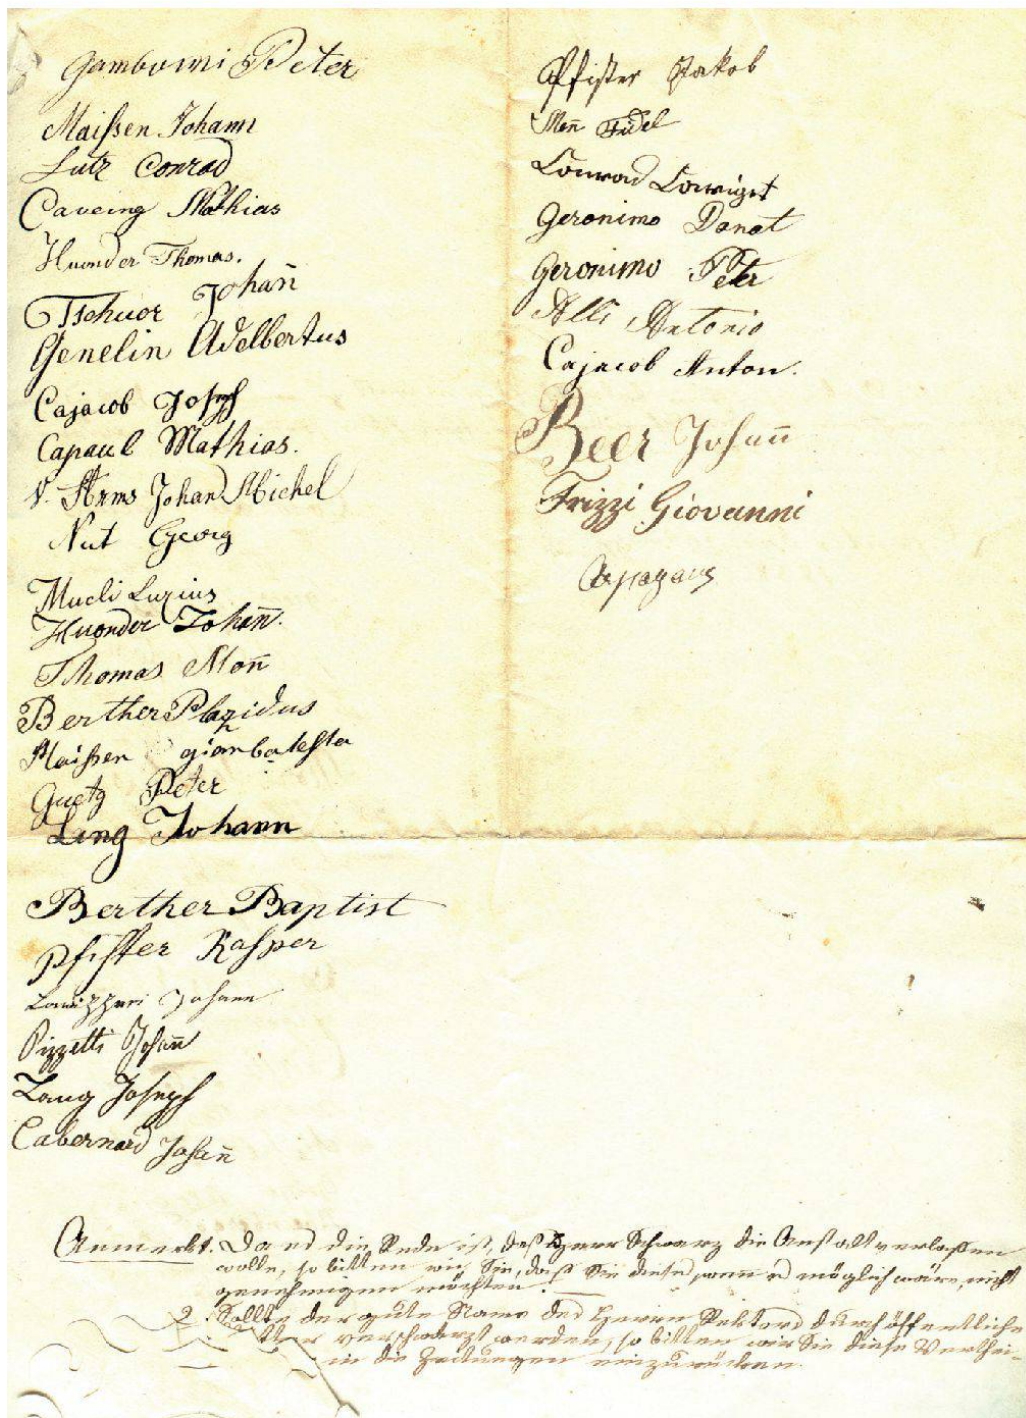 Gamboni Peter
Maißen Johann
Lutz Conrad
Caveing Mathias
Huonder Thomas.
Tschuor Johan̄
Genelin Adelbertus
Cajacob Joseph
Capaul Mathias.
V. Arms Johan Michel
Nut Georg
Muoli Luzius
Huonder Johan̄.
Thomas Mon̄
Berther Plazidus
Maißen giambatesta
Guetg Peter
Ling Johann
Berther Baptist
Pfiffer Kasper
Johann
Pizzetti Johan̄
Lang Joseph
Cabernard Johan̄
Pfister Jakob
Men̄ Fidel
Conrad
Geronimo Donat
Geronimo Peter
Alli Antonio
Cajacob Anton.
Beer Johan̄
Frizzi Giovanni
Anmerkt. Da es die Rede ist, daß Herr Schwarz die Anstalt verlaßen
wolle, so bitten wir Sie, daß Sie dieses wenn es möglich wäre, nicht
genehmigen möchten.
2. Sollte der gute Name des Herrn Rektors durch öffentliche
verschwärzt werden, so bitten wir Sie diese Verthei-
in die Zeitungen einzurücken.